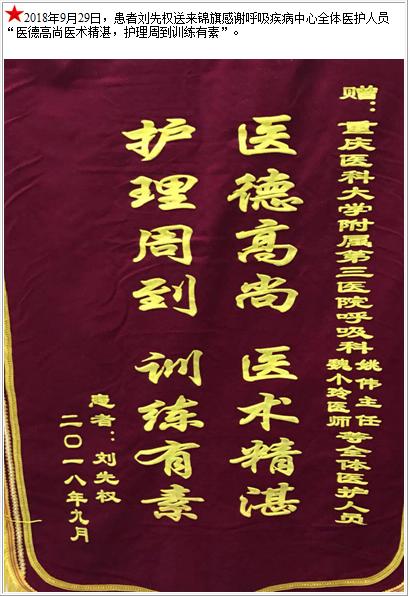 2018年9月29日，患者刘先权送来锦旗感谢呼吸疾病中心全体医护人员
“医德高尚医术精湛，护理周到训练有素”。
赠：重庆医科大学附属第三医院呼吸科姚伟主任魏个玲医师等全体医护人员
医德高尚 医术精湛
护理周到 训练有素
患者：刘先权
二〇一八年九月